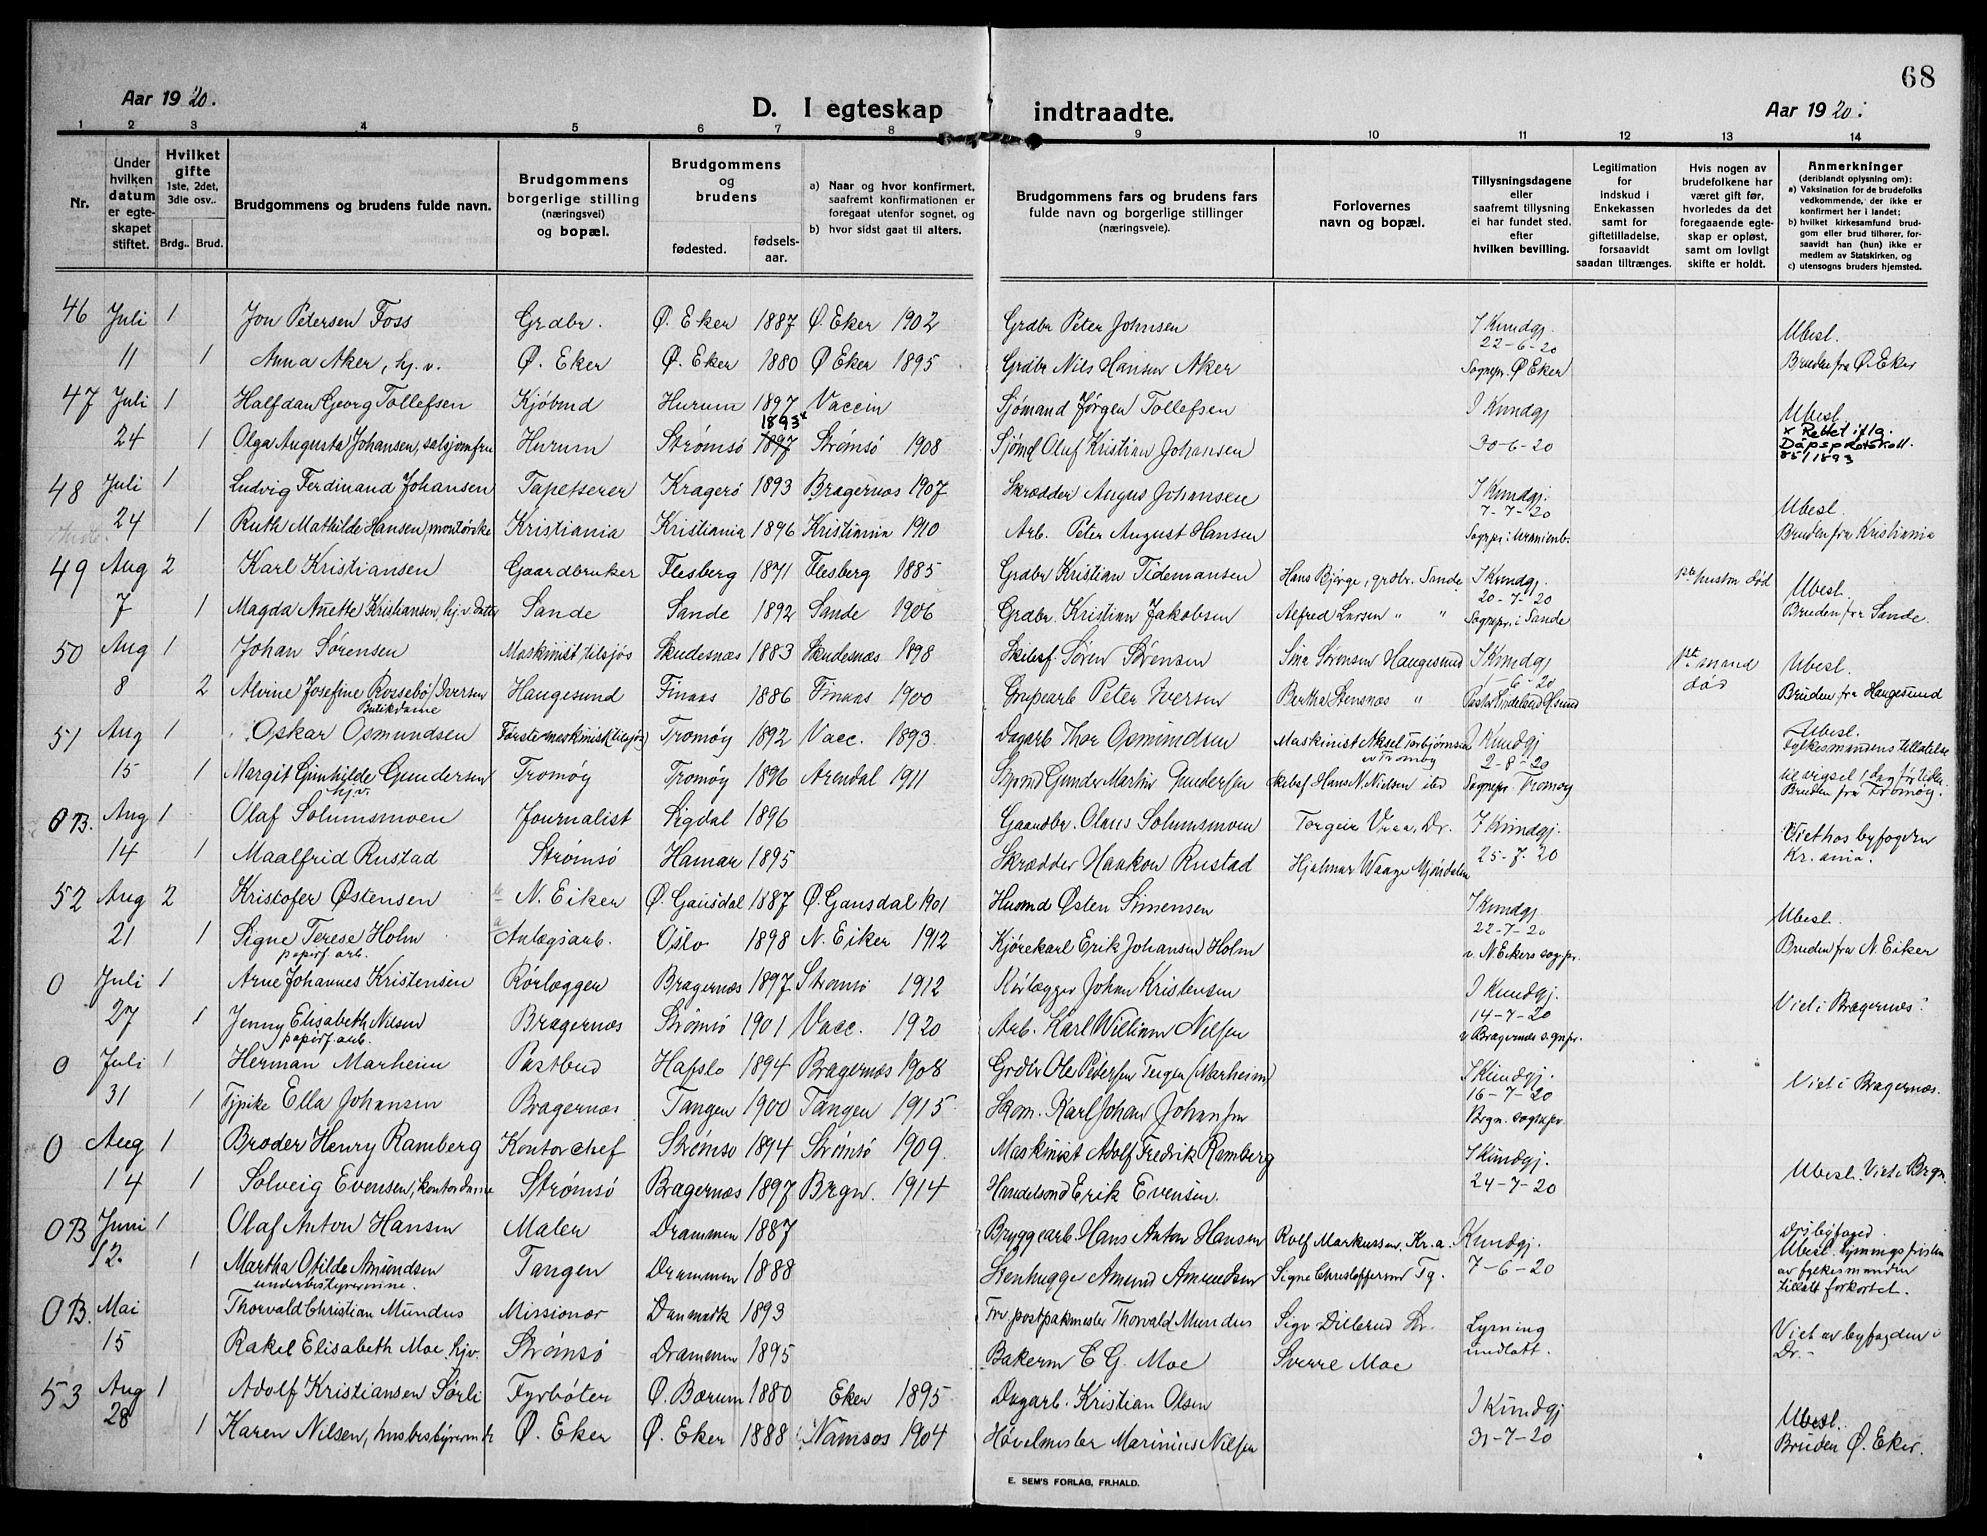 68
Aar 1920.
D. I egteskap indtraadte.
Aar 1920.
1 2 3 4 5 6 7 8 9 10 11 12 13 14
Nr.
Under hvilken datum er egteskapet stiftet.
Hvilket gifte 1ste, 2det, 3die osv..
Brdg.. Brud.
Brudgommens og brudens fulde navn.
Brudgommens borgerlige stilling (næringsvei) og bopæl.
Brudgommens og brudens
fødested. fødsels-aar.
a) Naar og hvor konfirmert, saafremt konfirmationen er foregaat utenfor sognet, og
b) hvor sidst gaat til alters.
Brudgommens fars og brudens fars fulde navn og borgerlige stillinger (næringsveie).
Forlovernes navn og bopæl.
Tillysningsdagene eller saafremt tillysning ei har fundet sted, efter hvilken bevilling.
Legitimation for indskud i Enkekassen samt for giftetilladelse, forsaavidt saadan tiltrænges.
Hvis nogen av brudefolkene har været gift før, hvorledes da det foregaaende egteskap er opløst, samt om lovligt skifte er holdt.
Anmerkninger (deriblandt oplysning om):
a) Vaksination for de brudefolks vedkommende, der ikke er konfirmert her i landet;
b) hvilket kirkesamfund brudgom eller brud tilhører, forsaavidt han (hun) ikke er medlem av Statskirken, og
c) utensogns bruders hjemsted.
46 Juli 1 Jon Petersen Foss Grdbr. Ø. Eker 1887 Ø. Eker 1902 Grdbr Peter Johnsen I Kundgj. 22-6-20 Ubesl.
11 1 Anna Aker, hj.v. Ø. Eker Ø. Eker 1880 Ø Eker 1895 Grdbr Nils Hansen Aker Sognepr. Ø Eker Bruden fra Ø. Eker
47 Juli 1 Halfdan Georg Tollefsen Kjøbmd Hurum 1897 Vaccin Sjømand Jørgen Tollefsen I Kundgj Ubesl.
24 1 Olga Augusta Johansen, salsjomfru Hurum Strømsø 1897 1893x Strømsø 1908 Sjømd Oluf Kristian Johansen 30-6-20 x Rettet iflg. Dåpsprotokoll. 85/1893
48 Juli 1 Ludvig Ferdinand Johansen Tapetserer Kragerø 1893 Bragernes 1907 Skrædder Augus Johansen I Kundgj. 7-7-20 Ubesl.
24 1 Ruth Mathilde Hansen, montørske Kristiania Kristiania 1896 Kristiania 1910 Arb. Peter August Hansen Sognepr. i Uranienb. Bruden fra Kristiania
49 Aug 2 Karl Kristiansen Gaardbruker Flesberg 1871 Flesberg 1885 Grdbr Kristian Tidemansen Hans Bjørge, grdbr. Sande I Kundgj. 20-7-20 1ste hustru død Ubesl.
7 1 Magda Anette Kristiansen, hj.v. datter Sande Sande 1892 Sande 1906 Grdbr. Kristian Jakobsen Alfred Larsen " " Sognepr. i Sande Bruden fra Sande.
50 Aug 1 Johan Sørensen Maskinist tilsjøs Skudesnæs 1883 Skudesnæs 1898 Skibsf. Søren Sørensen Sina Sørensen Haugesund I Kundgj 1-6-20 1ste mand død Ubesl.
8 2 Alvine Josefine Rossebø / Iversen Butikdame Haugesund Finaas 1886 Finaas 1900 Peter Iversen Bertha Stensnæs " Bruden fra Haugesund
51 Aug 1 Oskar Osmundsen Førstemaskinist (tilsjøs) Tromøy 1892 Vacc. 1893 Dagarb Thor Osmundsen Maskinist Aksel Torbjørnsen av Tromøy I Kundgj 2-8-20 Ubesl. Fylkesmandens tillatelse
15 1 Margit Gunhilde Gundersen hj.v. Tromøy Tromøy 1896 Arendal 1911 Gunder Martin Gundersen Skibsf Hans N. Nielsen sted Sognepr. Tromøy til vigsel 1 dag før tiden. Bruden fra Tromøy.
OB. Aug 1 Olaf Solumsmoen Journalist Sigdal 1896 Gaardbr. Olaus Solumsmoen Torgeir Vraa, Dr. I Kundgj. Viet hos byfogden
14 1 Maalfrid Rustad Strømsø Hamar 1895 Skrædder Haakon Rustad Hjalmar Waage Mjøndalen 25-7-20 Kr.ania.
52 Aug 2 Kristofer Østensen N. Eiker Ø. Gausdal 1887 Ø. Gausdal 1901 Husmd Østen Simensen I Kundgj 22-7-20 Ubesl.
21 1 Signe Terese Holm papirf. arb. Anlægsarb. Oslo 1898 N. Eiker 1912 Kjørekarl Erik Johansen Holm v. N. Eikers sognpr. Bruden fra N. Eiker
0 Juli 1 Arne Johannes Kristensen Rørlægger Bragernes 1897 Strømsø 1912 Rørlægger Johan Kristensen I Kundgj. 14-7-20 Viet i Bragernes.
27 1 Jenny Elisabeth Nilsen papirf. arb. Bragernæs Strømsø 1901 Vacc. 1920 Arb. Karl William Nilsen v Bragernes sognpr.
0 Juli 1 Herman Marheim Postbud Hafslo 1894 Bragernes 1908 Grdbr Ole Pedersen Teigen (Marheim) I Kundgj. 16-7-20 Viet i Bragernes.
31 1 Typike Ella Johansen Bragernæs Tangen 1900 Tangen 1915 Skom. Karl Johan Johansen Brgn. sognepr
0 Aug 1 Broder Henry Ramberg Kontorchef Strømsø 1894 Strømsø 1909. Maskinist Adolf Fredrik Ramberg I Kundgj. Ubesl. Viet i Brgn
14 1 Solveig Evensen, kontordame Strømsø Bragernæs 1897 Brgn. 1914 Handelsmd Erik Evensen. 24-7-20
OB Juni 1 Olaf Anton Hansen Maler Drammen 1887 Bryggearb Hans Anton Hansen Rolf Markussen, Kr.a. Kundgj. Drs byfoged. Ubesl. Lysningsfristen
12. 1 Martha Otilde Amundsen underbestyrerinne. Tangen Drammen 1888 Stenhugge Amund Amundsen Signe Christoffersen Tg. 7-6-20 av fylkesmanden tillatt forkortet.
OB. Mai Thorvald Christian Mundus Missionær Danmark 1893 Frv postpakmester Thorvald Mundus Sigv Dillerud Dr. Lysning undlatt. Viet av byfogden i Dr.-
15 Rakel Elisabeth Moe hjv. Strømsø Drammen 1895 Bakerm E G. Moe Sverre Moe
53 Aug 1 Adolf Kristiansen Sørli Fyrbøter Ø. Bærum 1880 Eker 1895 Dagarb. Kristian Olsen I Kundgj Ubesl.
28 1 Karen Nilsen, husbestyrerinde Ø. Eker Ø. Eker 1888 Namsos 1904 Høvelmester Marinius Nilsen 31-7-20 Bruden Ø. Eker.
E. SEM'S FORLAG, FR.HALD.